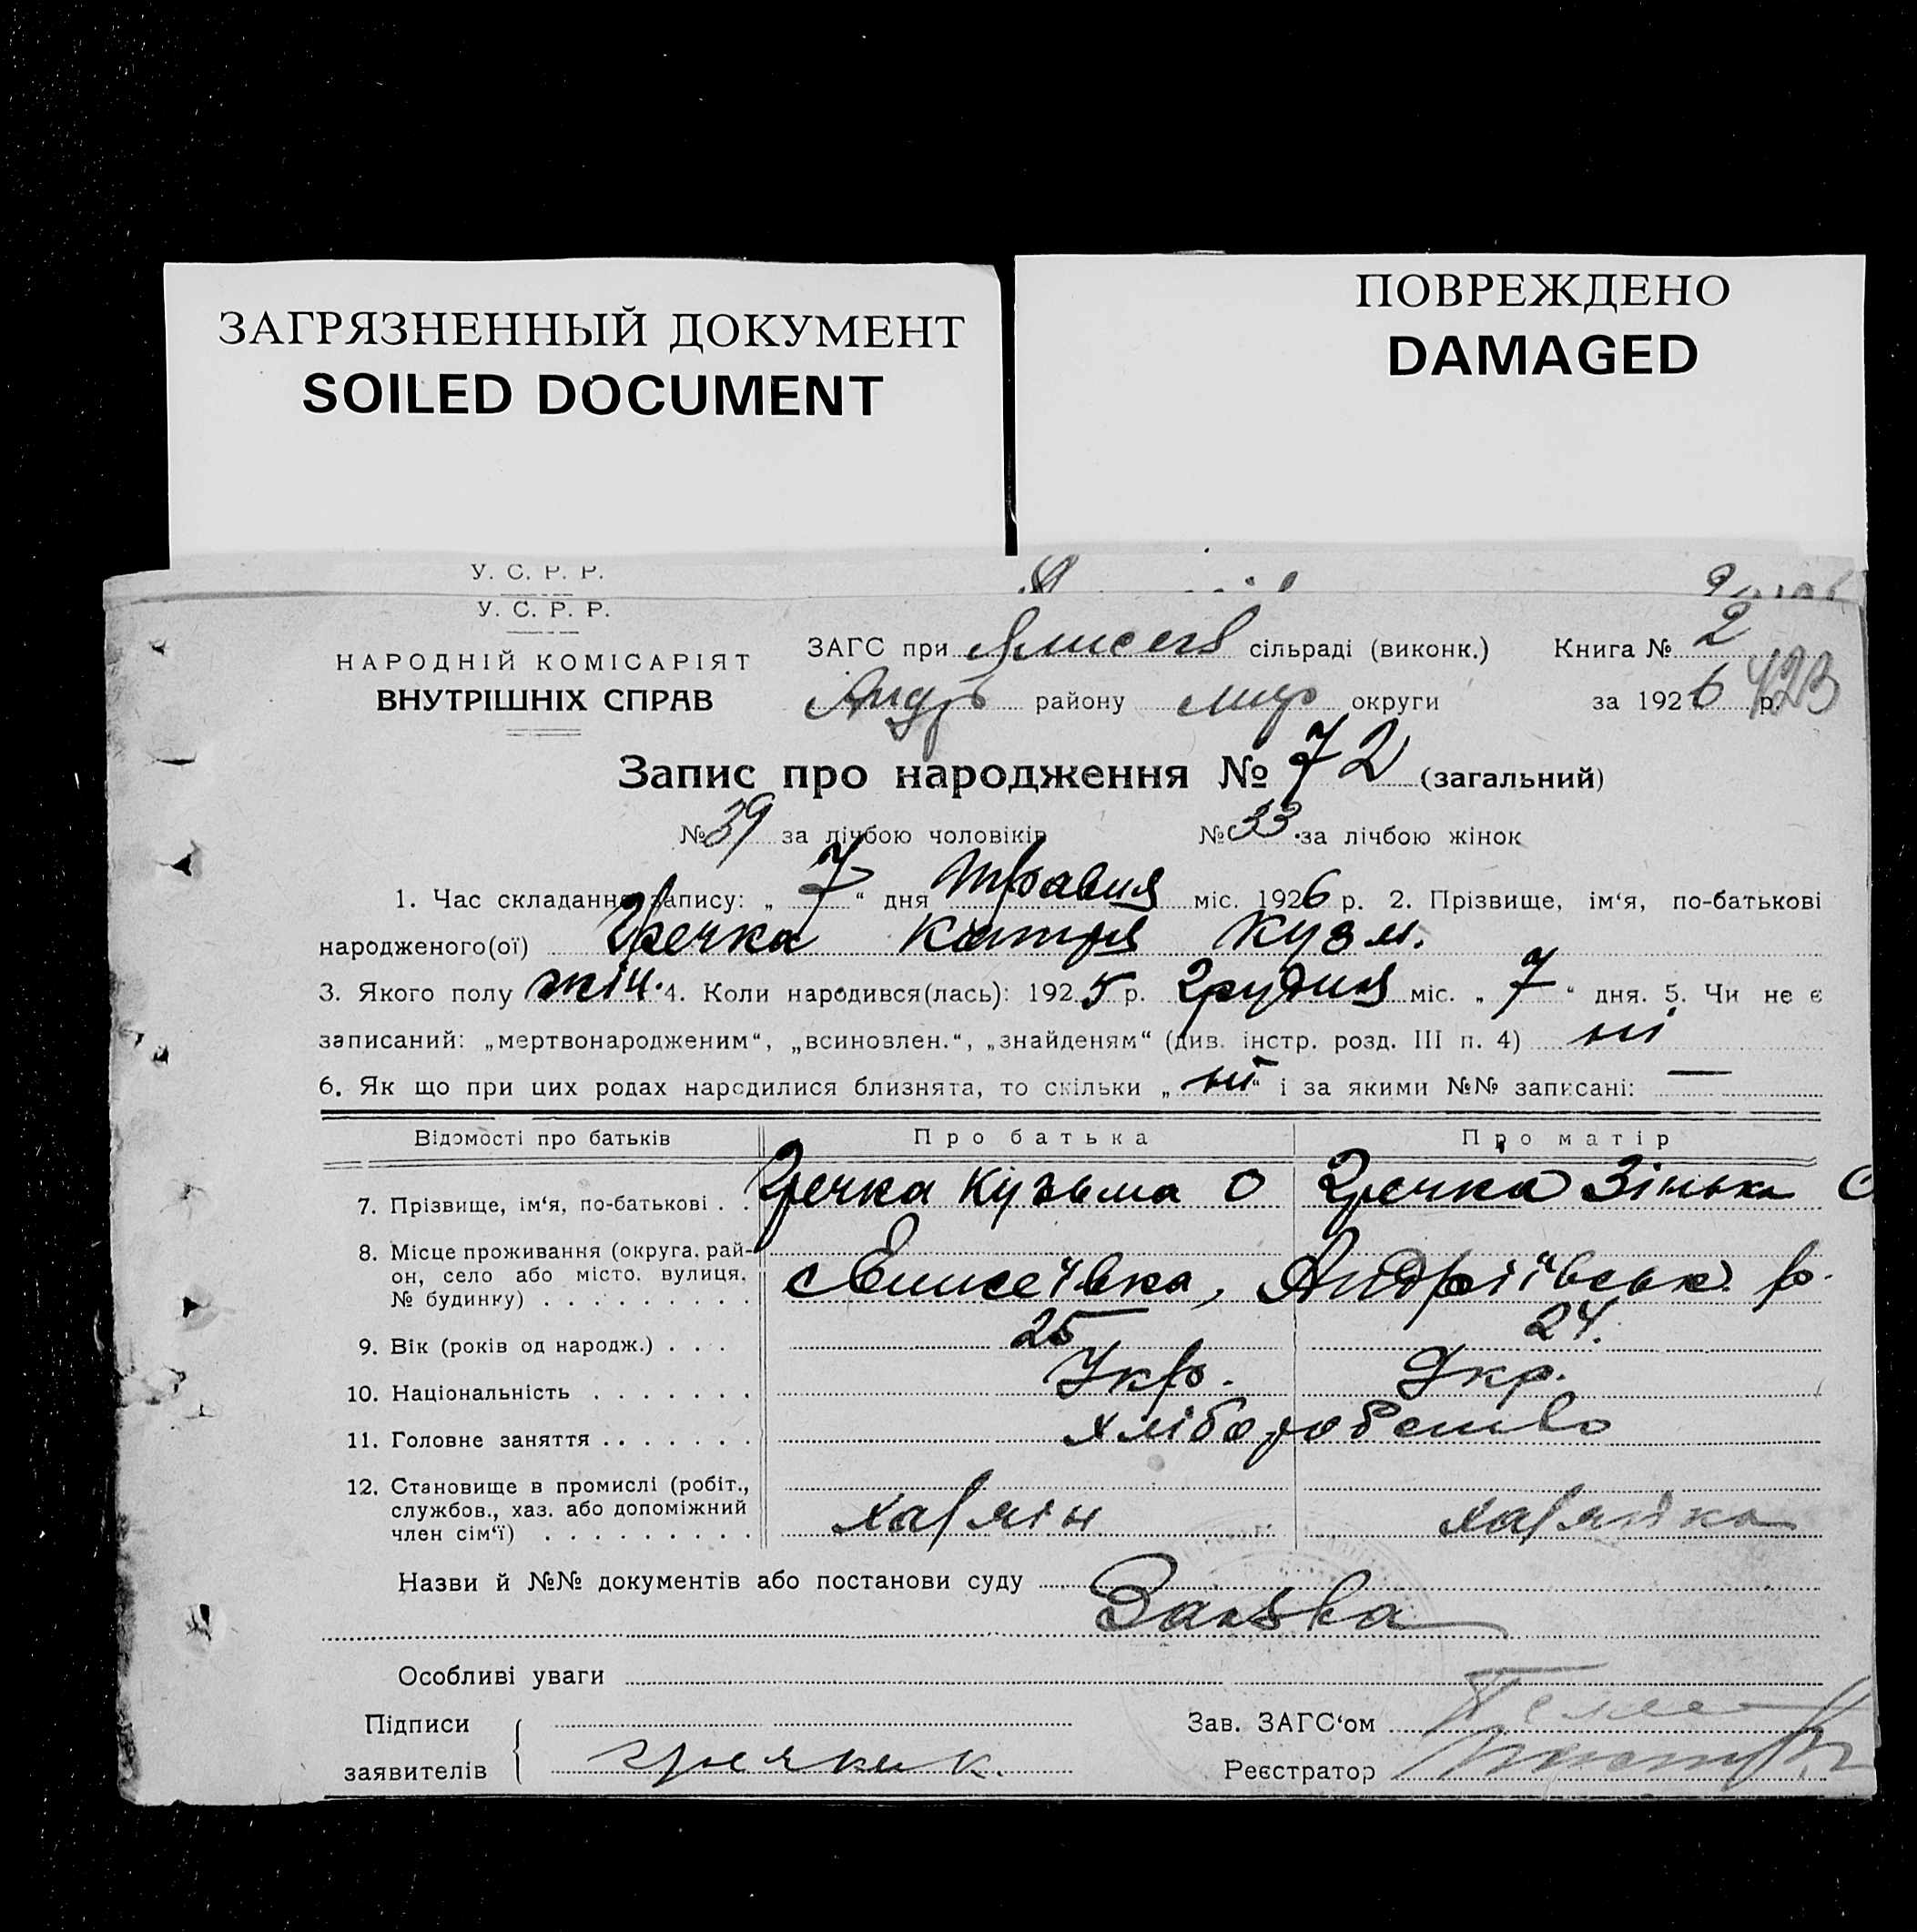 ЗАГРЯЗНЕННЫЙ ДОКУМЕНТ
SOILED DOCUMENT
ПОВРЕЖДЕНО
DAMAGED
У. С. Р. Р.
У. С. Р. Р.
НАРОДНІЙ КОМІСАРІЯТ
ВНУТРІШНІХ СПРАВ
ЗАГС при сільраді (виконк.) Книга № 2
Андр району округи за 1926 р. 423
Запис про народження № 72 (загальний)
№ 39 за лічбою чоловіків № 33 за лічбою жінок
1. Час складання запису: „ 7 “ дня травня міс. 1926 р. 2. Прізвище, ім‘я, по-батькові
народженого(ої) Гречка Катря Кузм.
3. Якого полу жін. 4. Коли народився(лась): 1925 р. грудня міс. „ 7 “ дня. 5. Чи не є
записаний: „мертвонародженим“, „всиновлен.“, „знайденям“ (див. інстр. розд. III п. 4) ні
6. Як що при цих родах народилися близнята, то скільки „ ні “ і за якими №№ записані: —
Відомості про батьків Про батька Про матір
7. Прізвище, ім‘я, по-батькові . . Гречка Кузьма О Гречка Зінька О
8. Місце проживання (округа, рай-
он, село або місто, вулиця,
№ будинку) . . . . . . . . . с Елисеївка, Андріївськ. р.
9. Вік (років од народж.) . . . 25 24.
10. Національність . . . . . . . Укр. Укр.
11. Головне заняття . . . . . . . хліборобство
12. Становище в промислі (робіт.,
службов., хаз. або допоміжний
член сім‘ї) . . . . . . . . . хазяїн хазяйка
Назви й №№ документів або постанови суду
Заява
Особливі уваги
Підписи
заявителів
Зав. ЗАГС‘ом
Реєстратор